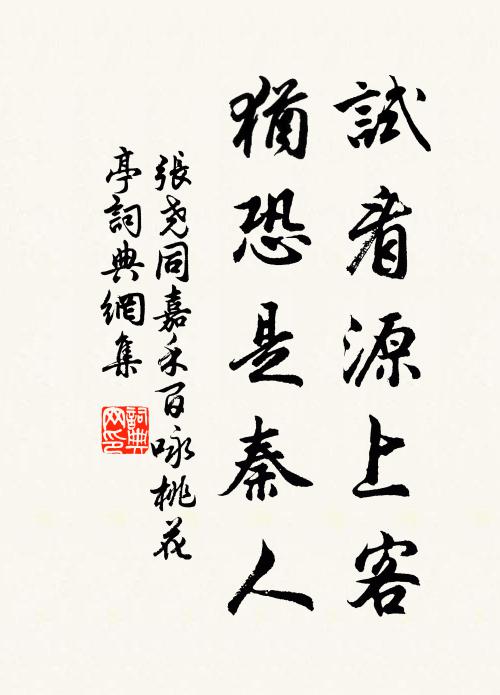 試看源上客
猶恐是秦人
張堯同嘉禾百咏桃花
亭詞典網集
詞典
网印